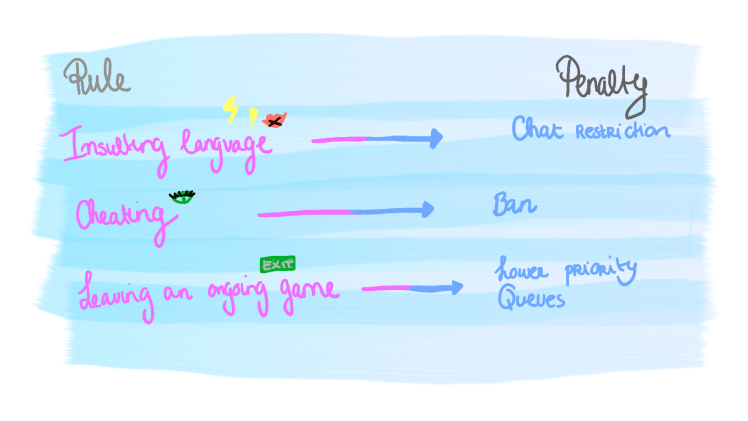 Rule Penalty
Insulting language Chat RESTRICTION
Cheating Ban
EXIT
Leaving an ongoing game Lower priority
Queues